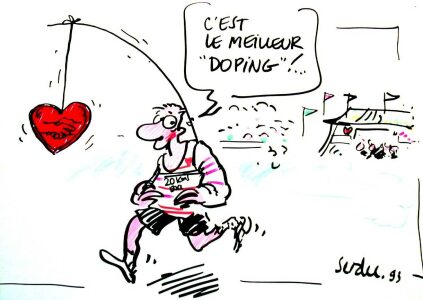 C'EST
LE MEILLEUR
"DOPING"!...
20 KM
serdu. 93